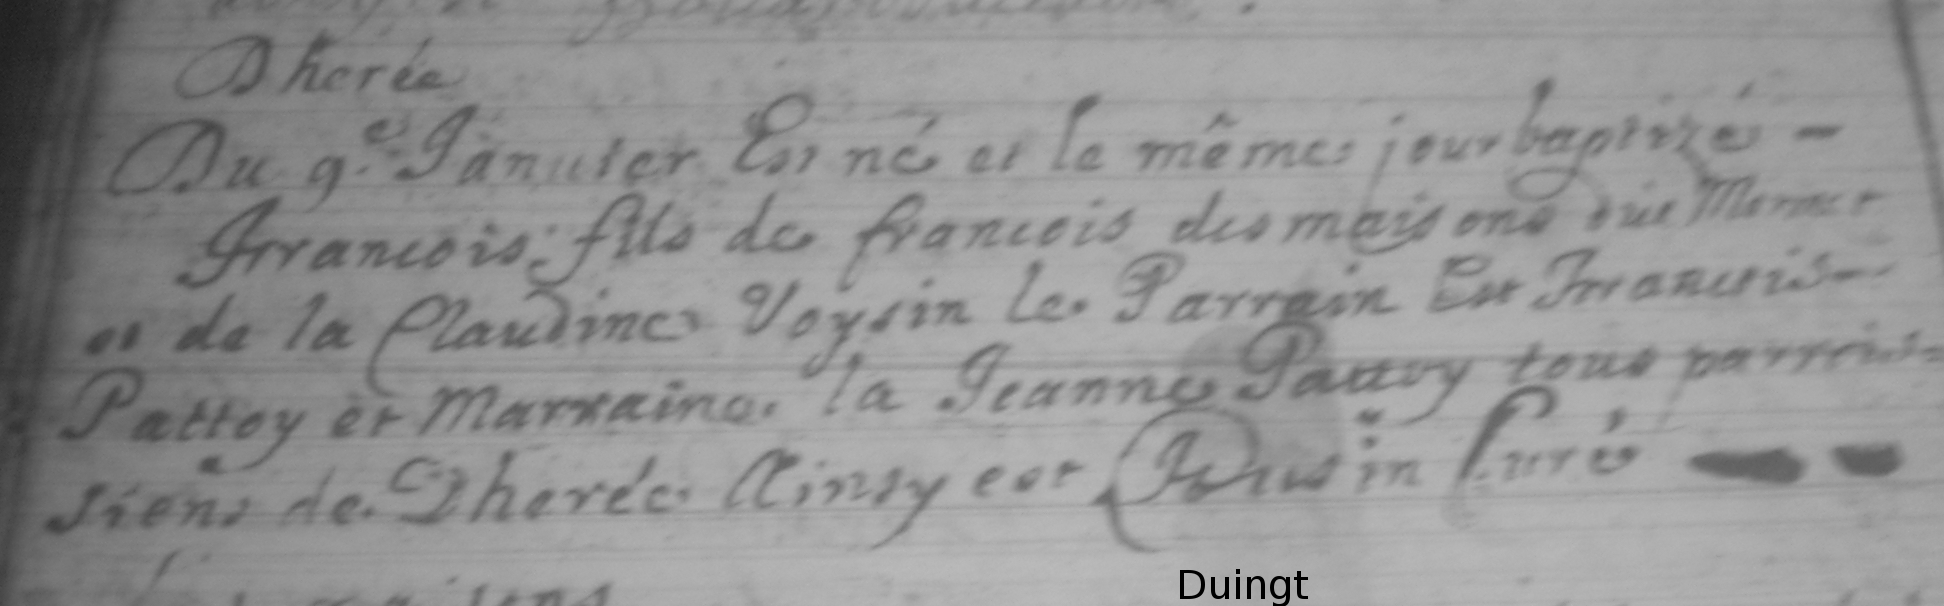 Dherée
Du 9.e Januier Est né et le même jour baptizé -
Frrancois fils de francois desmaisons dit Mermet
et de la Claudine Voysin le Parrain Est Frrancois
Pattoy et Marraine la Jeanne Pattoy tous parrois-
siens de Dherée Ainsy est Curé
Duingt